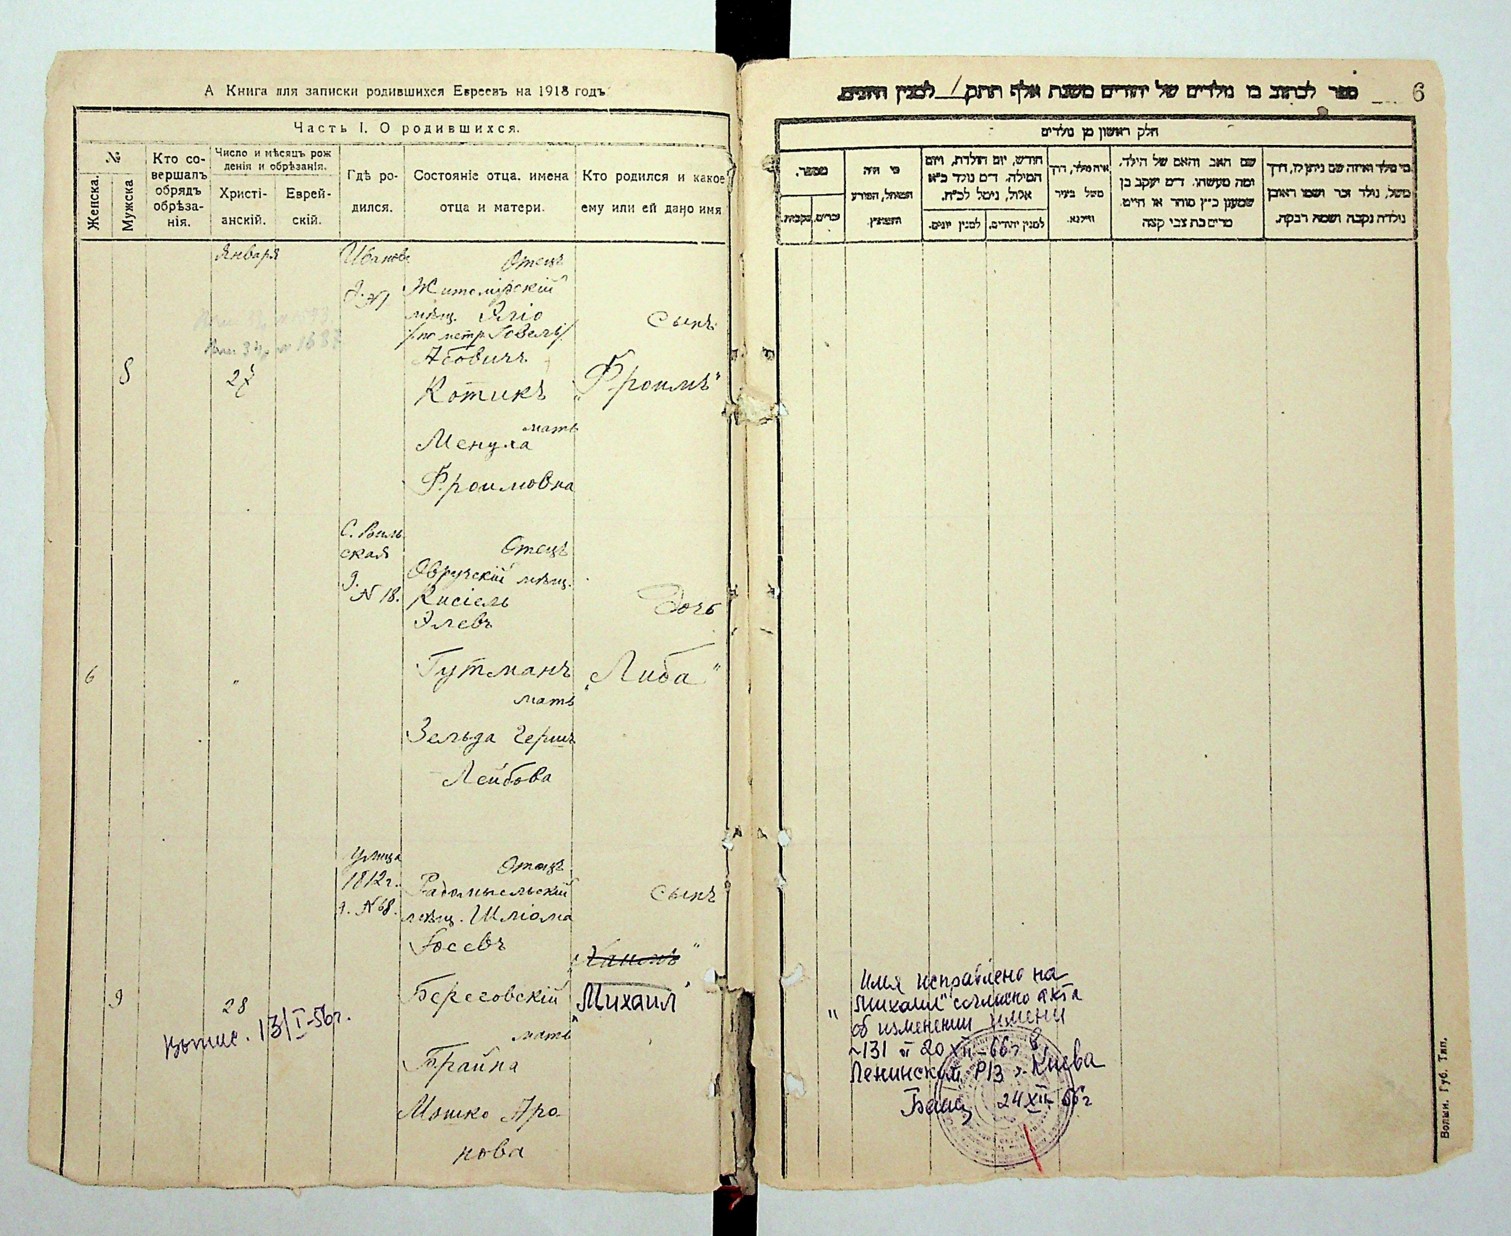 А Книга для записки родившихся Евреевъ на 1918 годъ
Часть I. О родившихся.
№
Женска.
Мужска
Кто со-
вершалъ
обрядъ
обрѣза-
нія.
Число и мѣсяцъ рож
денія и обрѣзанія.
Христі-
анскій.
Еврей-
скій.
Гдѣ ро-
дился.
Состояніе отца, имена
отца и матери.
Кто родился и какое
ему или ей дано имя
Января
8
27
Отецъ
Житомірскій
мѣщ. Эліо
Абовичъ
Котикъ
мать
Менуха
Фроимовна
Сынъ
„Фроимъ"
6
"
С. Виль
ская
д.
№ 18.
Отецъ
Овручскій мѣщ.
Кисіель
Элевъ
Гутманъ
мать
Зельда Герш
Лейбова
Дочь
„Либа"
9
28
Выпис. 13/I-56г.
Улица
1812 г.
д. №68.
Отецъ
Радомысльскій
мѣщ. Шліома
Іосевъ
Береговскій
мать
Брайна
Мошко Аро
нова
Сынъ
„Михаил"
6
ספר לכתוב בו נולדים של יהודים משנת אלף תתק לסנין היונים.
חלק ראשון מן נולדים
מספר.
נקבות.
זכרים.
מי היה
המוהל, הפורע
והמוצץ.
חודש, יום הולדת, ויום
המילה. ד״מ נולד כ״א
אלול, נימול לכ״ח.
למנין יונים.
למנין יהודים.
איה נולד, דרך
משל בעיר
ווילנא.
שם האב והאם של הילד.
ומה מעשהו. ד״מ יעקב בן
שמעון כ״ץ סוחר או חייט.
מרים בת צבי קצה
מי נולד ואיזה שם ניתן לו, דרך
משל, נולד זכר ושמו ראובן
נולדה נקבה ושמה רבקה.
Имя исправлено на
„Михаил" согласно акта
об изменении имени
№131 от 20 XII-66г в
Ленинском РЗ г. Киева
24 XII 66г
Волын. Губ. Тип.